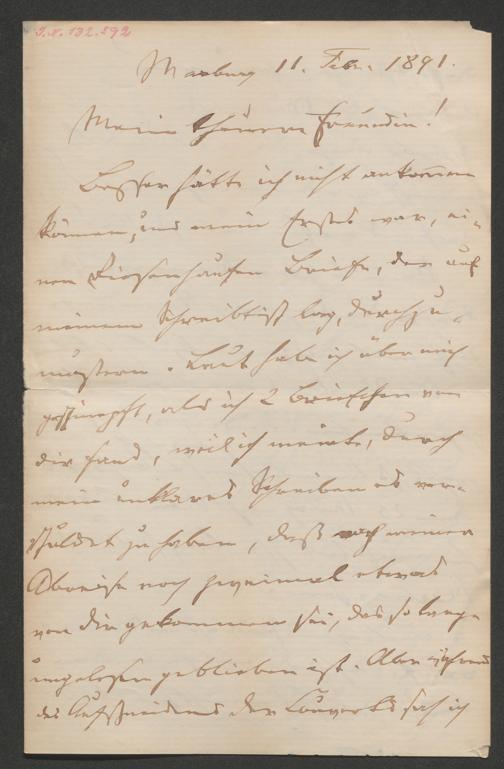 I.N. 132.592
Marburg 11. Febr. 1891.
Meine theuere Freundin!
Besser hätte ich nicht ankommen
können, und mein Erstes war, ei-
nen Riesenhaufen Briefe, der auf
meinem Schreibtisch lag, durchzu-
mustern. Laut habe ich über mich
geschimpft, als ich 2 Briefchen von
dir fand, weil ich meinte, durch
mein unklares Schreiben es ver-
schuldet zu haben, daß nach meiner
Abreise noch zweimal etwas
von dir gekommen sei, das so lange
ungelesen geblieben ist. Aber während
des Aufschneidens der Couverts sah ich